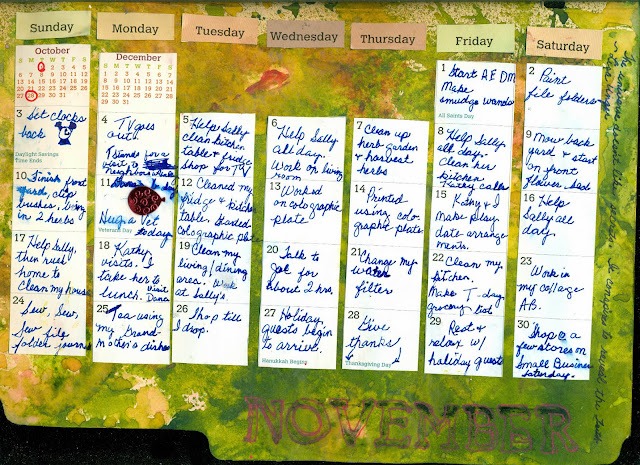 Sunday
Monday
Tuesday
Wednesday
Thursday
Friday
Saturday
October
S M T W T F S
1 2 3 4 5
6 7 8 9 10 11 12
13 14 15 16 17 18 19
20 21 22 23 24 25 26
27 28 29 30 31
December
S M T W T F S
1 2 3 4 5 6 7
8 9 10 11 12 13 14
15 16 17 18 19 20 21
22 23 24 25 26 27 28
29 30 31
1 Start AEDM
Make
smudge wands
All Saints Day
2 Paint
file folders
3 Set clocks
back
Daylight Savings
Time Ends
4 TV goes
out.
5 Help Sally
clean kitchen
table & fridge
Shop for TV
6
Help Sally
all day.
Work on living
room
7 Clean up
herb garden
& harvest
herbs
8 Help Sally
all day.
Clean her
kitchen.
Kathy calls
9 Mow back
yard & start
on front
flower bed
10 Finish front
yard, atop
bushes, bring
in 2 herbs
11
Hug a Vet
Veterans Day today
12 Cleaned my
fridge & kitchen
table. Started
colographic plate
13 Worked
on colographic
plate
14
Printed
using colo-
graphic plate
15 Kathy & I
make play
date arrange
ments.
16
Help
Sally all
day.
17
Help Sally,
then rush
home to
clean my house
18
Kathy
visits. I
take her to
lunch. Visit
Dana
19 Clean my
living/dining
area. Work
at Sally's.
20 Talk to
Joe for
about 2 hrs.
21
Change my
water
filter
22 Clean my
kitchen.
Make T-day
grocery list
23
Work in
my collage
AB.
24
Sew, Sew,
Sew file
folder journal
25
Tea using
my Grand-
mother's dishes
26
Shop till
I drop.
27 Holiday
guests begin
to arrive.
Hanukkah Begins
28
Give
thanks
Thanksgiving Day
29 Rest &
relax w/
holiday guests
30
Shop @ a
few stores on
Small Business
Saturday.
NOVEMBER